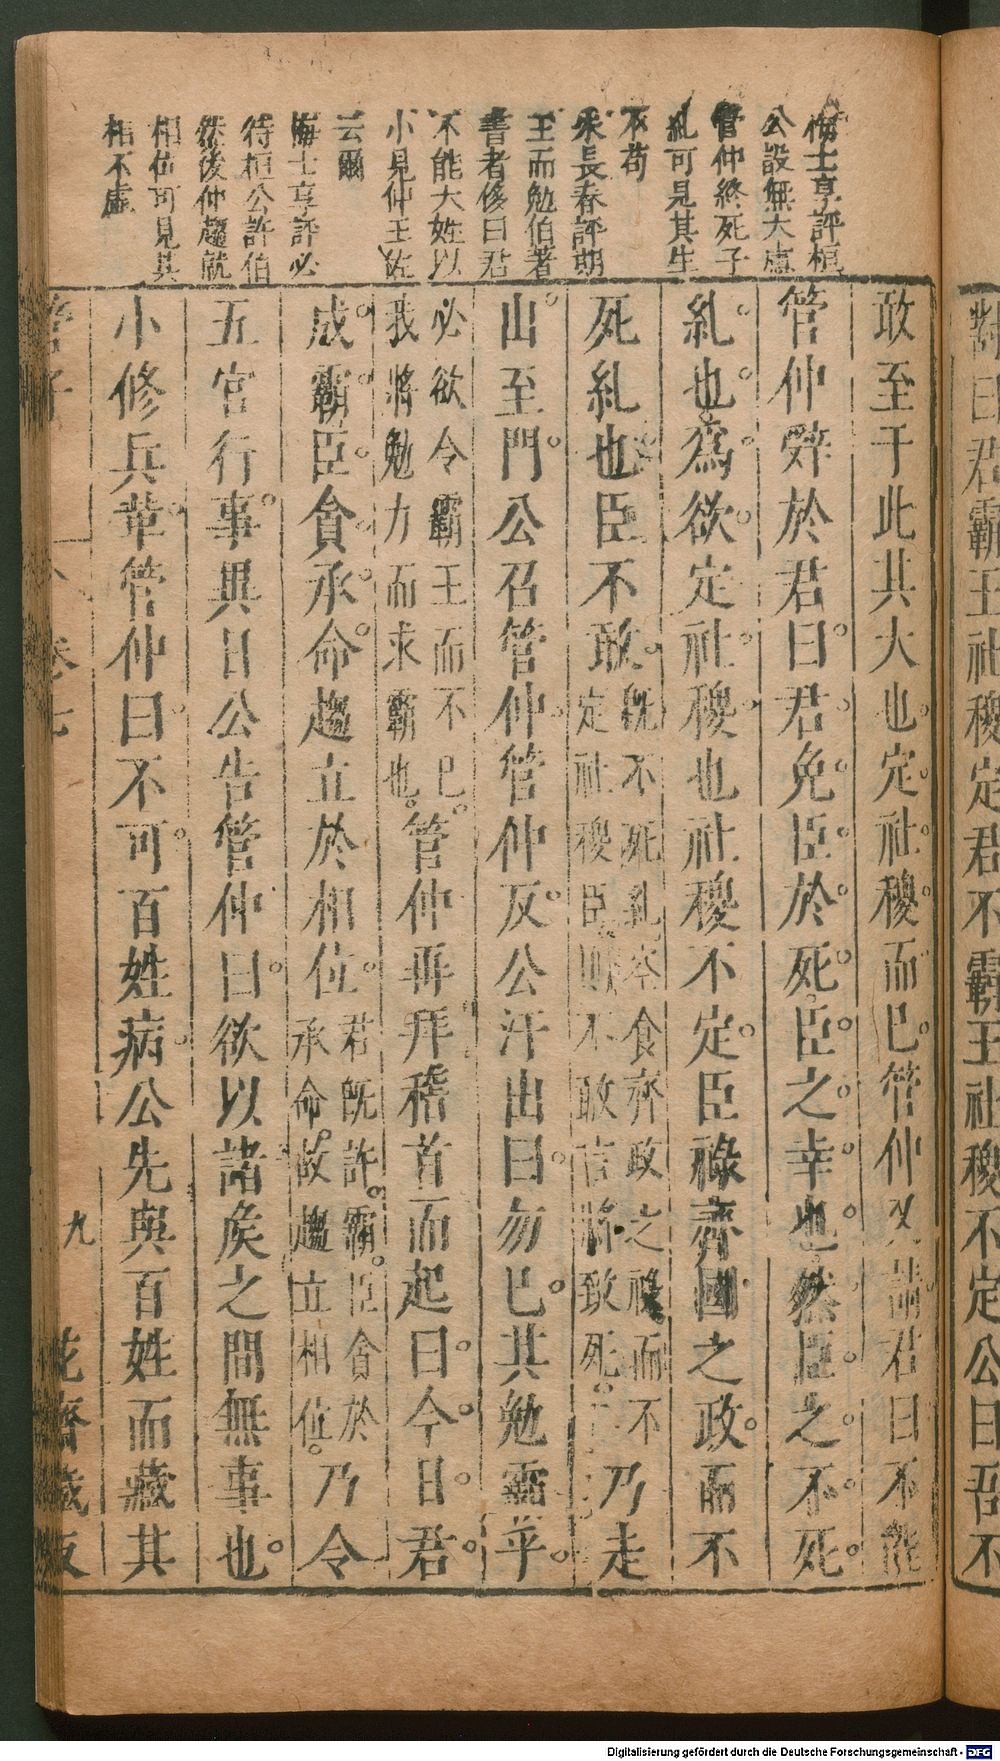 對曰君霸王社稷定君不霸王社稷不定公曰吾不
敢至于此其大也定社稷而已管仲又請君曰不能
管仲辤於君曰君免臣於死臣之幸也然臣之不死
糺也爲欲定社稷也社稷不定臣祿齊國之政而不
死糺也臣不敢旣不死糺空食齊政之祿而不定社稷臣則不敢言將致死乃走
出至門公召管仲管仲反公汗出曰勿已其勉霸乎
必欲令霸王而不已我將勉力而求霸也管仲再拜稽首而起曰今日君
成霸臣貪承命趨立於相位君旣許霸臣貪於承命故趨立相位乃令
五官行事異日公告管仲曰欲以諸矦之間無事也
小修兵革管仲曰不可百姓病公先與百姓而藏其
管子
卷七
九
花齋藏板
梅士享評桓
公設無大慮
管仲終死子
糺可見其生
不苟
朱長春評朗
王而勉伯著
書者後曰君
不能大姓以
小見仲王佐
云爾
梅士享評必
待桓公許伯
然後仲趨就
相位可見其
相不虛
Digitalisierung gefördert durch die Deutsche Forschungsgemeinschaft - DFG